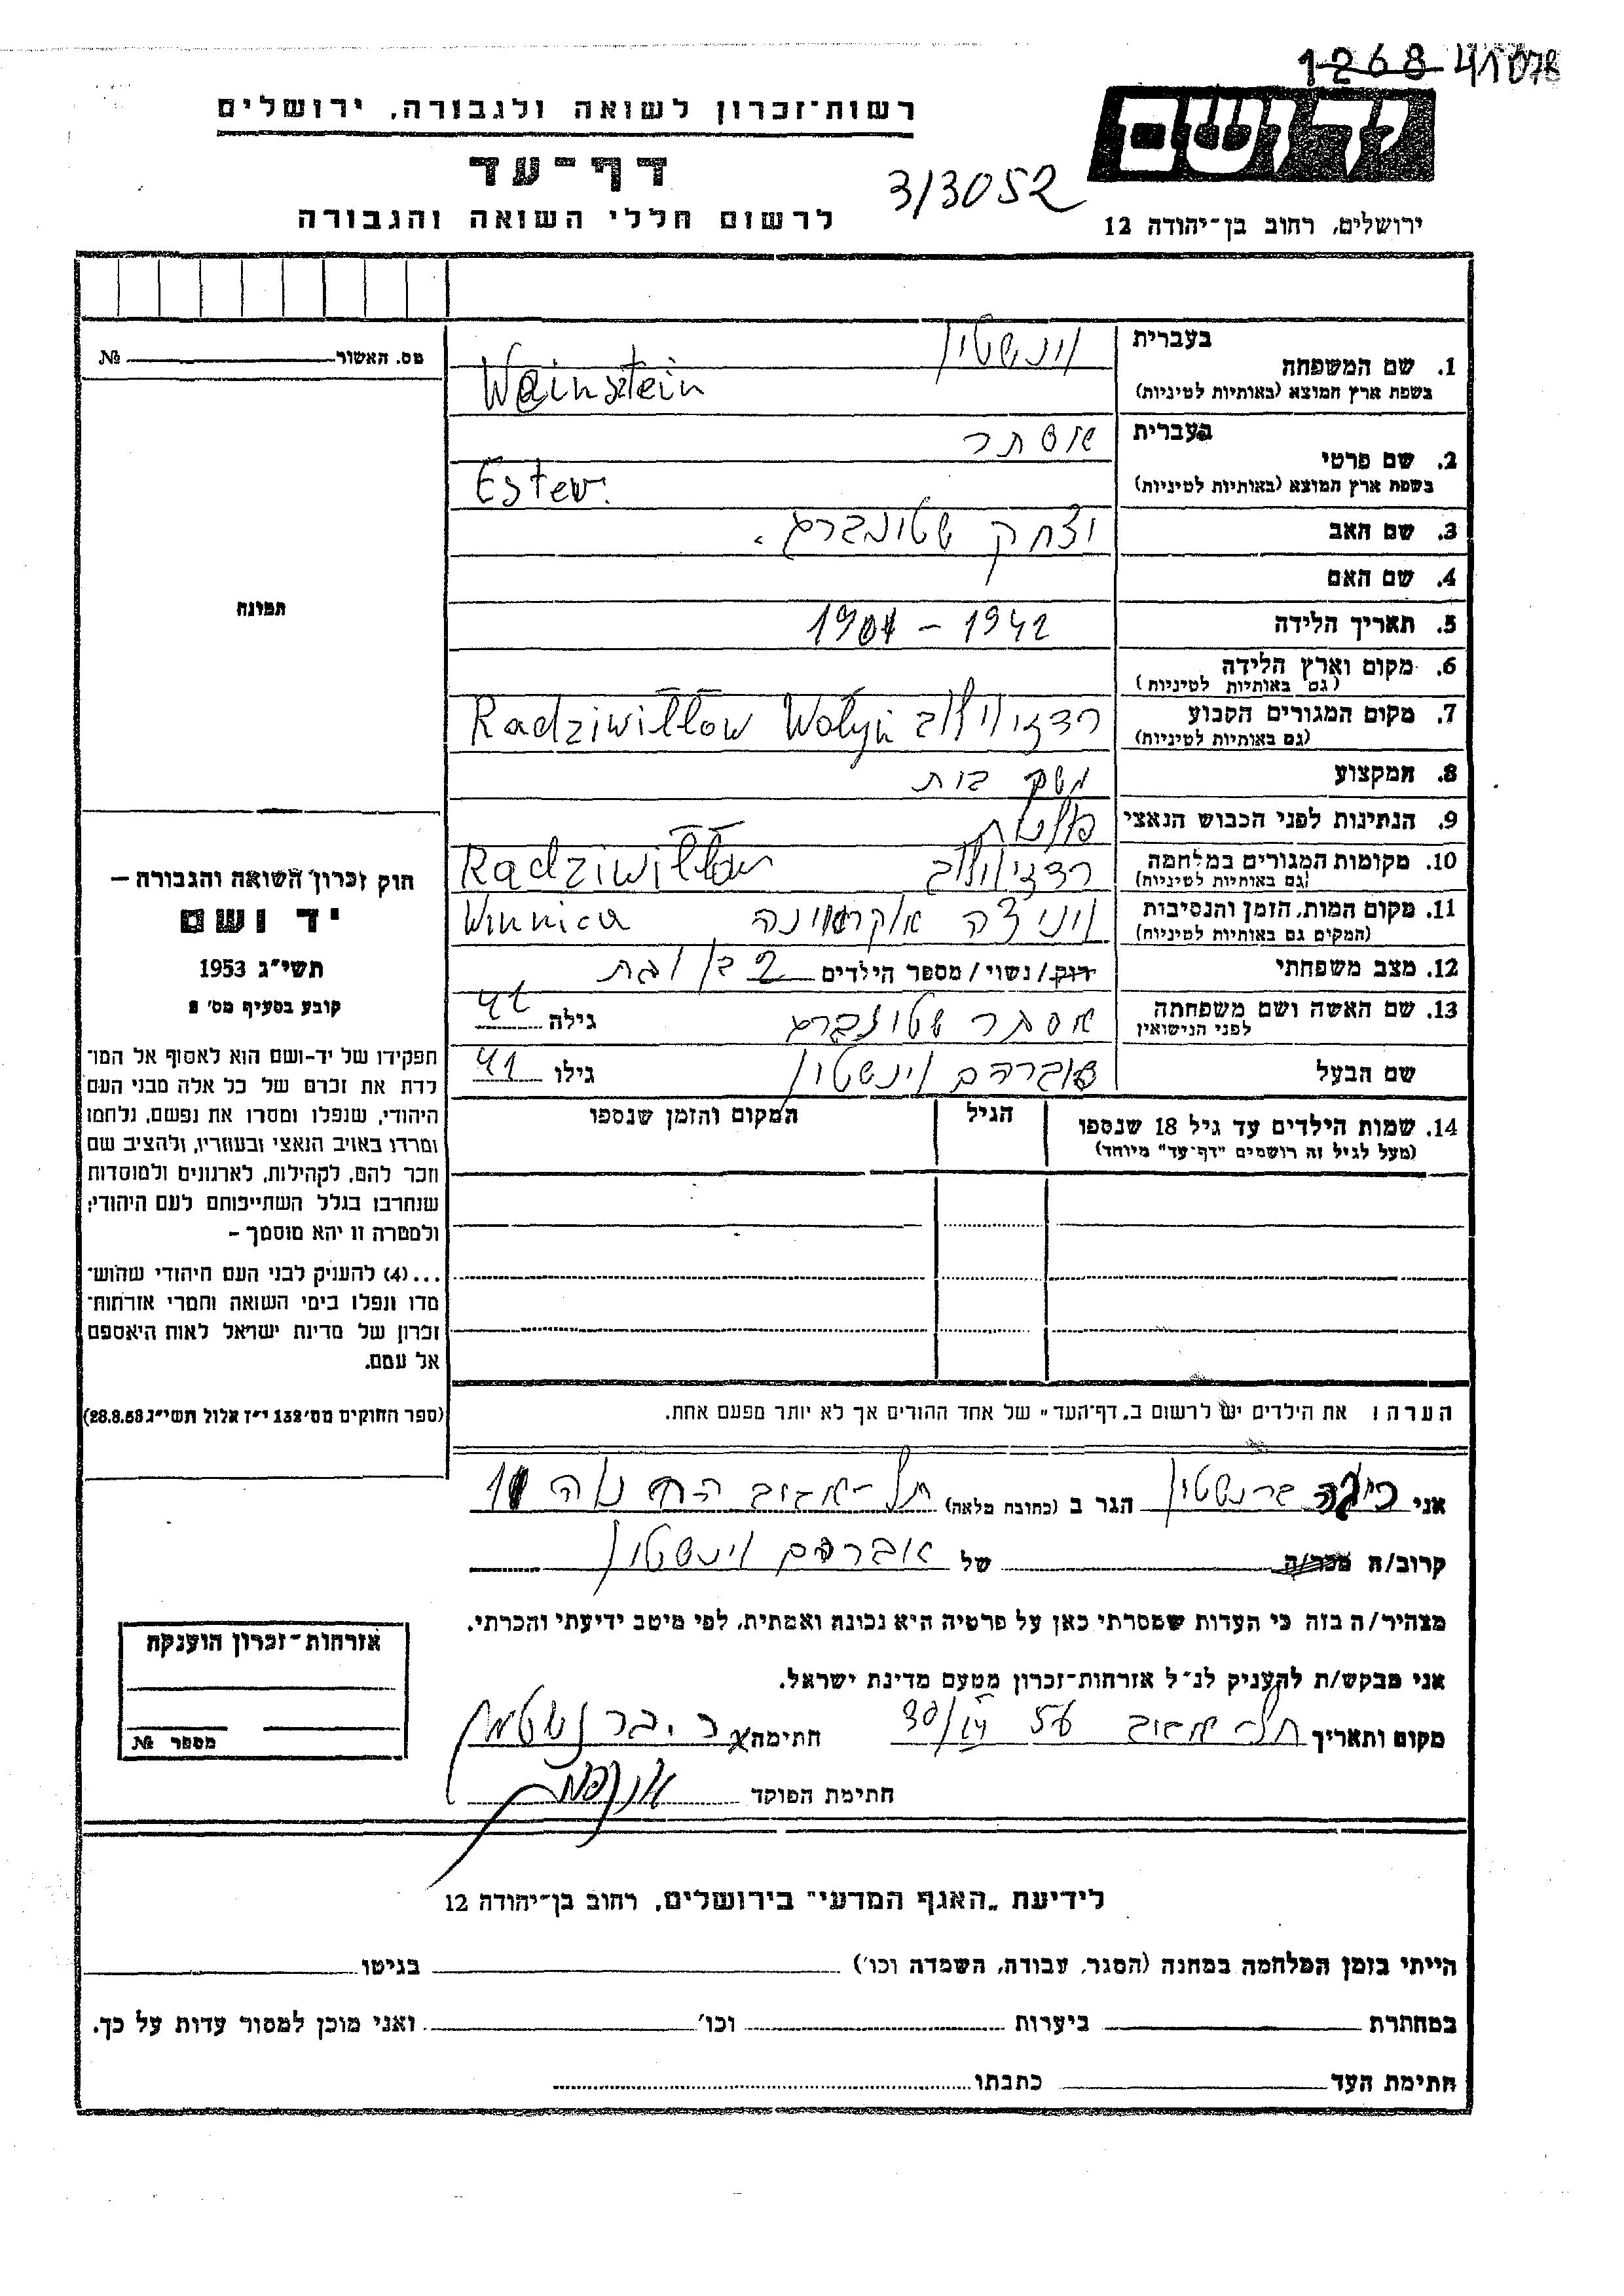 1268 41078
רשות-זכרון לשואה ולגבורה, ירושלים
דף-עד
3/3052
לרשום חללי השואה והגבורה
ירושלים, רחוב בן-יהודה 12
מס. האשור № 
בעברית וינשטין
1. שם המשפחה
בשפת ארץ המוצא (באותיות לטיניות) Weinsztein
בעברית אסתר
2. שם פרטי
בשפת ארץ המוצא (באותיות לטיניות) Ester.
3. שם האב יצחק שטונברג.
4. שם האם
5. תאריך הלידה 1901 – 1942
6. מקום וארץ הלידה
(גם באותיות לטיניות)
7. מקום המגורים הקבוע רדזיוילוב Radziwiłłów Wołyń
(גם באותיות לטיניות)
8. המקצוע משק בית
9. הנתינות לפני הכבוש הנאצי פולנית
10. מקומות המגורים במלחמה רדזיוילוב Radziwiłłów
(גם באותיות לטיניות)
11. מקום המות, הזמן והנסיבות ויניצה אוקראינה Winnica
(המקום גם באותיות לטיניות)
12. מצב משפחתי רוק/נשוי/מספר הילדים 2 בן ובת
13. שם האשה ושם משפחתה אסתר שטונברג גילה 41
לפני הנישואין
שם הבעל אברהם וינשטין גילו 41
14. שמות הילדים עד גיל 18 שנספו הגיל המקום והזמן שנספו
(מעל לגיל זה רושמים "דף-עד" מיוחד)
הערה: את הילדים יש לרשום ב„דף-העד" של אחד ההורים אך לא יותר מפעם אחת.
תמונה
חוק זכרון השואה והגבורה —
יד ושם
תשי"ג 1953
קובע בסעיף מס' 2
תפקידו של יד-ושם הוא לאסוף אל המו־
לדת את זכרם של כל אלה מבני העם
היהודי, שנפלו ומסרו את נפשם, נלחמו
ומרדו באויב הנאצי ובעוזריו, ולהציב שם
וזכר להם, לקהילות, לארגונים ולמוסדות
שנחרבו בגלל השתייכותם לעם היהודי;
ולמטרה זו יהא מוסמך –
...(4) להעניק לבני העם היהודי שהוש־
מדו ונפלו בימי השואה והמרי אזרחות־
זכרון של מדינת ישראל לאות היאספם
אל עמם.
(ספר החוקים מס' 132 י"ז אלול תשי"ג 28.8.53)
אני ברנשטין הגר ב (כתובת מלאה) תל-אביב
קרוב/ה מכר/ה של אברהם וינשטין
מצהיר/ה בזה כי העדות שמסרתי כאן על פרטיה היא נכונה ואמתית, לפי מיטב ידיעתי והכרתי.
אני מבקש/ת להעניק לנ"ל אזרחות-זכרון מטעם מדינת ישראל.
מקום ותאריך תל-אביב 56 חתימה
חתימת הפוקד
אזרחות-זכרון הוענקה
מספר №
לידיעת „האגף המדעי" בירושלים, רחוב בן-יהודה 12
הייתי בזמן המלחמה במחנה (הסגר, עבודה, השמדה וכו') בגיטו
במחתרת ביערות וכו' ואני מוכן למסור עדות על כך.
חתימת העד כתבתו